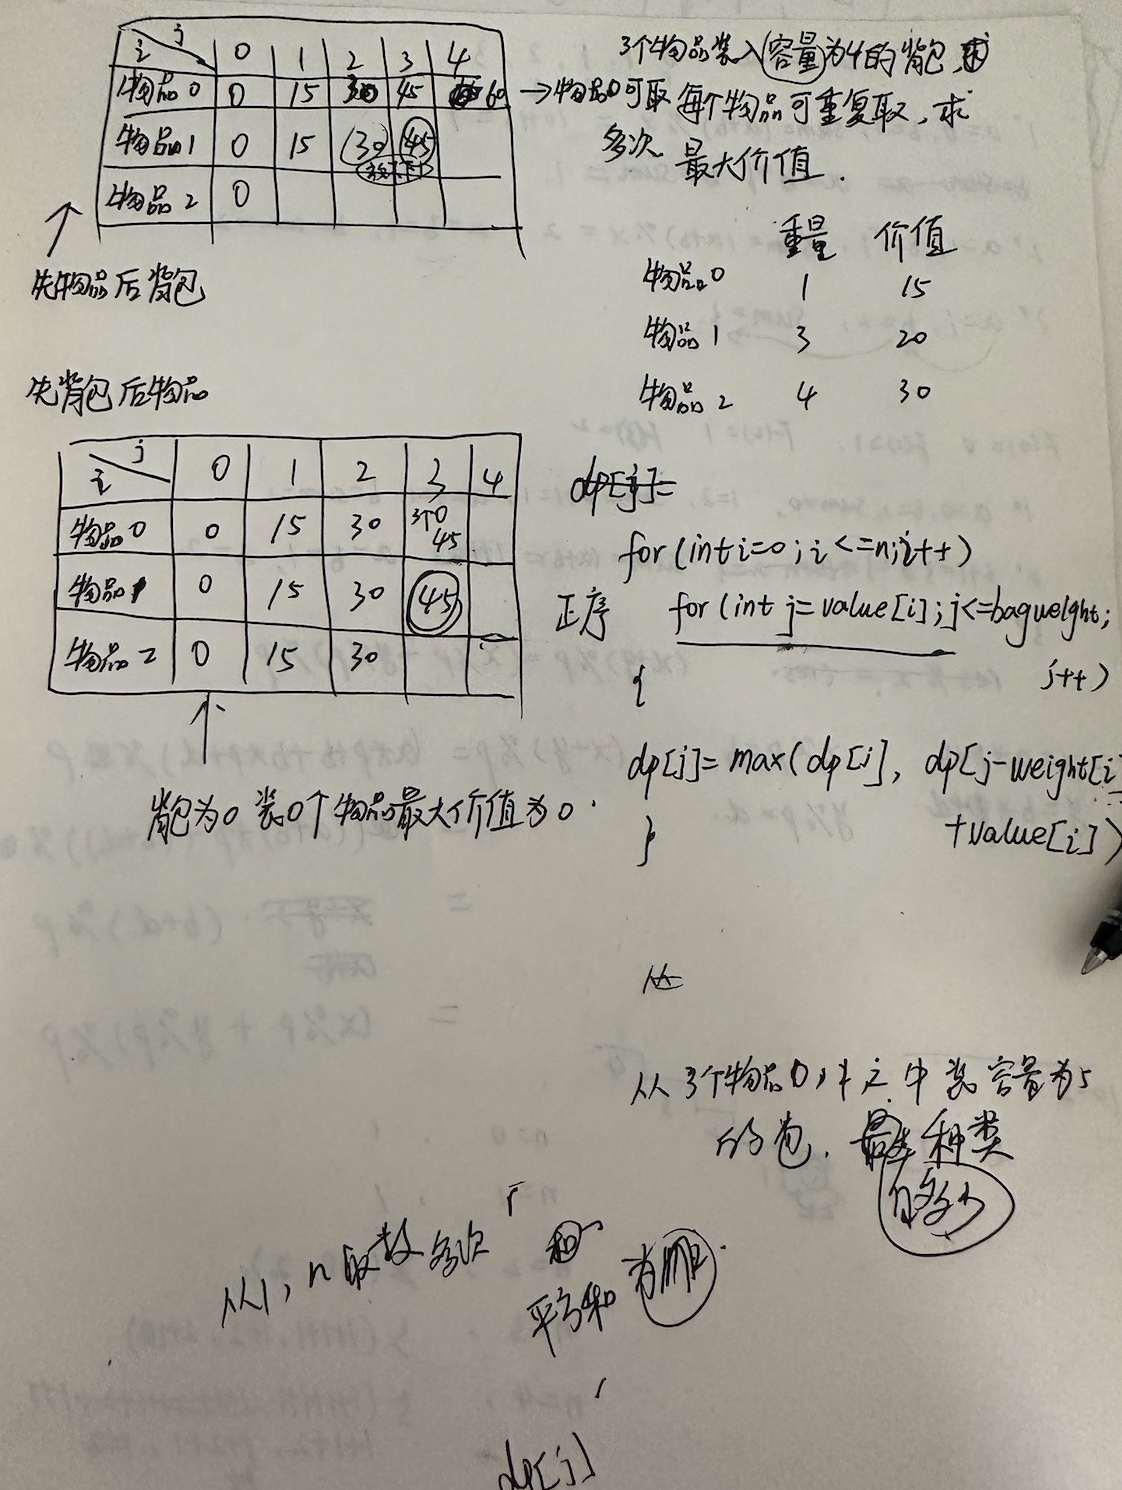 i j 0 1 2 3 4
物品0 0 15 30 45 60 →物品0可取多次
物品1 0 15 (30) 45
放不下
物品2 0
先物品后背包
3个物品装入容量为4的背包,
每个物品可重复取,求
最大价值.
重量 价值
物品0 1 15
物品1 3 20
物品2 4 30
先背包后物品
i j 0 1 2 3 4
物品0 0 15 30 3个0 45
物品1 0 15 30 45
物品2 0 15 30
背包为0装0个物品最大价值为0.
dp[j]=
for(int i=0;i<=n;i++)
正序 for(int j=value[i];j<=bagweight;
j++)
{
dp[j]=max(dp[j], dp[j-weight[i]
+value[i])
}
从
从3个物品0,1,2中装容量为5
的包. 种类
有多少
从1,n取数多次
和
平方和 为
dp[j]